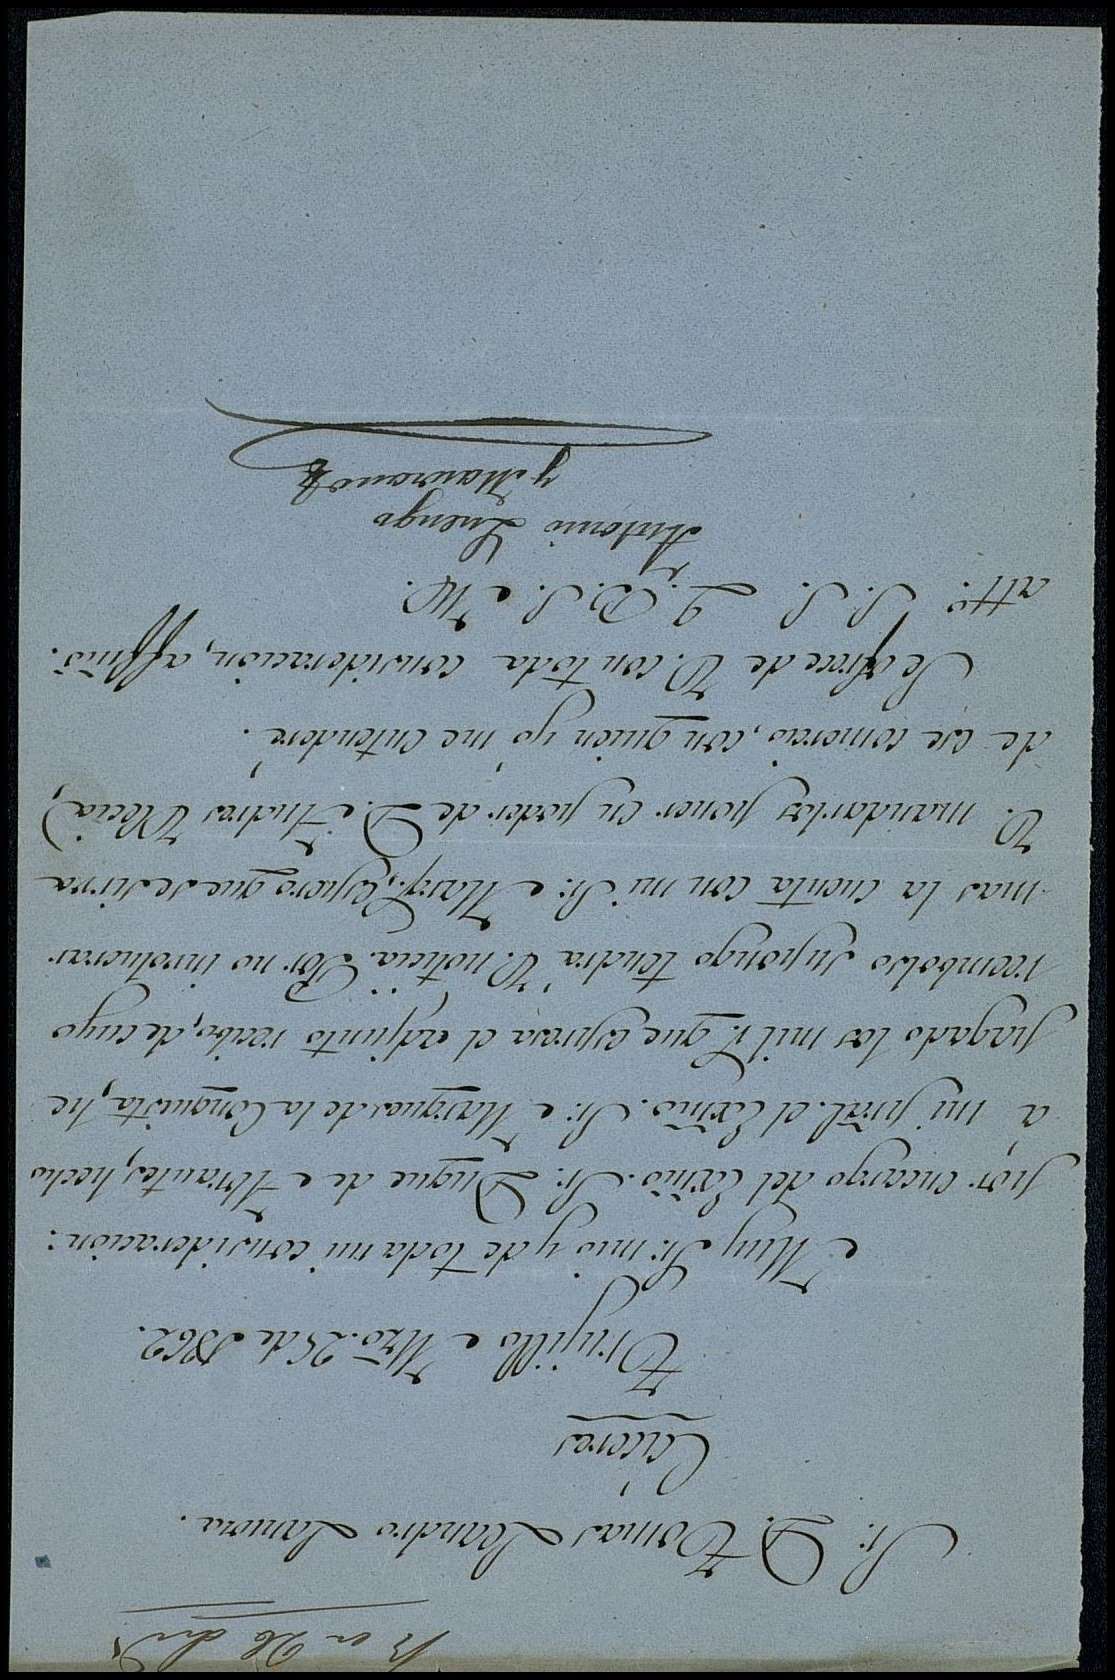 R en 26 de id.
Sr. D. Tomas Leandro Lamora.
Cáceres
Trujillo Mzo. 25 de 1862.
Muy Sr. mio y de toda mi consideracion:
por encargo del Exmo. Sr. Duque de Abrantes, hecho
á mi pral. el Exmo. Sr. Marques de la Conquista, he
pagado los mil r.s que espresa el adjunto recibo, de cuyo
reembolso supongo tendrá V. noticia. Por no involucrar
mas la cuenta con mi Sr. Marq.s, espero que se sirva
V. mandarlos poner en poder de D. Andres
de ese comercio, con quien yo me entenderé.
Se ofrece de V. con toda consideracion, affmo.
atto. S. S. Q. B. S. M.
Antonio Luengo
y